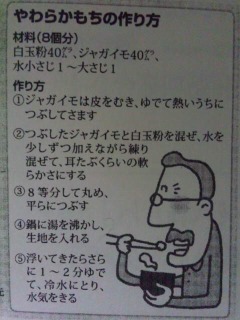 やわらかもちの作り方
材料(8個分)
白玉粉40㌘、ジャガイモ40㌘、
水小さじ1〜大さじ1
作り方
①ジャガイモは皮をむき、ゆでて熱いうちに
つぶしてさます
②つぶしたジャガイモと白玉粉を混ぜ、水を
少しずつ加えながら練り
混ぜて、耳たぶくらいの軟
らかさにする
③8等分して丸め、
平らにつぶす
④鍋に湯を沸かし、
生地を入れる
⑤浮いてきたらさら
に1〜2分ゆで
て、冷水にとり、
水気をきる